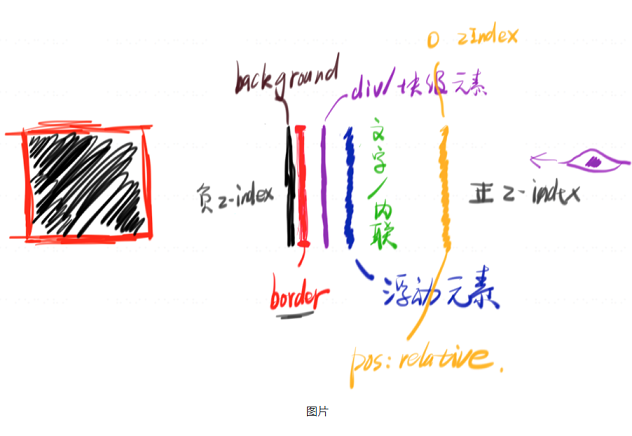 0 zIndex
background
div/块级元素
文字/内联
负z-index
正z-index
border
浮动元素
pos:relative.
图片